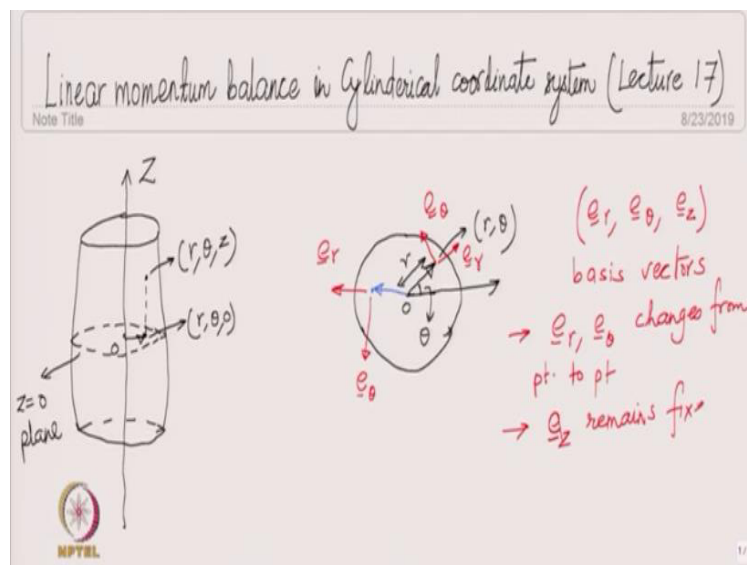 Linear momentum balance in Cylinderical coordinate system (Lecture 17)
Note Title
8/23/2019
Z
(r, θ, z)
(r, θ, 0)
O
z=0
plane
e̲r
e̲θ
e̲θ
(r, θ)
e̲r
r
O
θ
(e̲r, e̲θ, e̲z)
basis vectors
→ e̲r, e̲θ changes from
pt. to pt
→ e̲z remains fix
NPTEL
1/